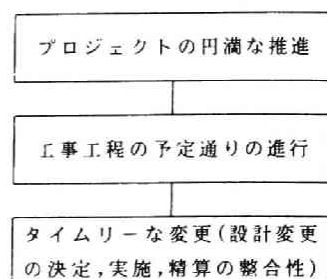 プロジェクトの円満な推進
工事工程の予定通りの進行
タイムリーな変更(設計変更
の決定,実施,精算の整合性)